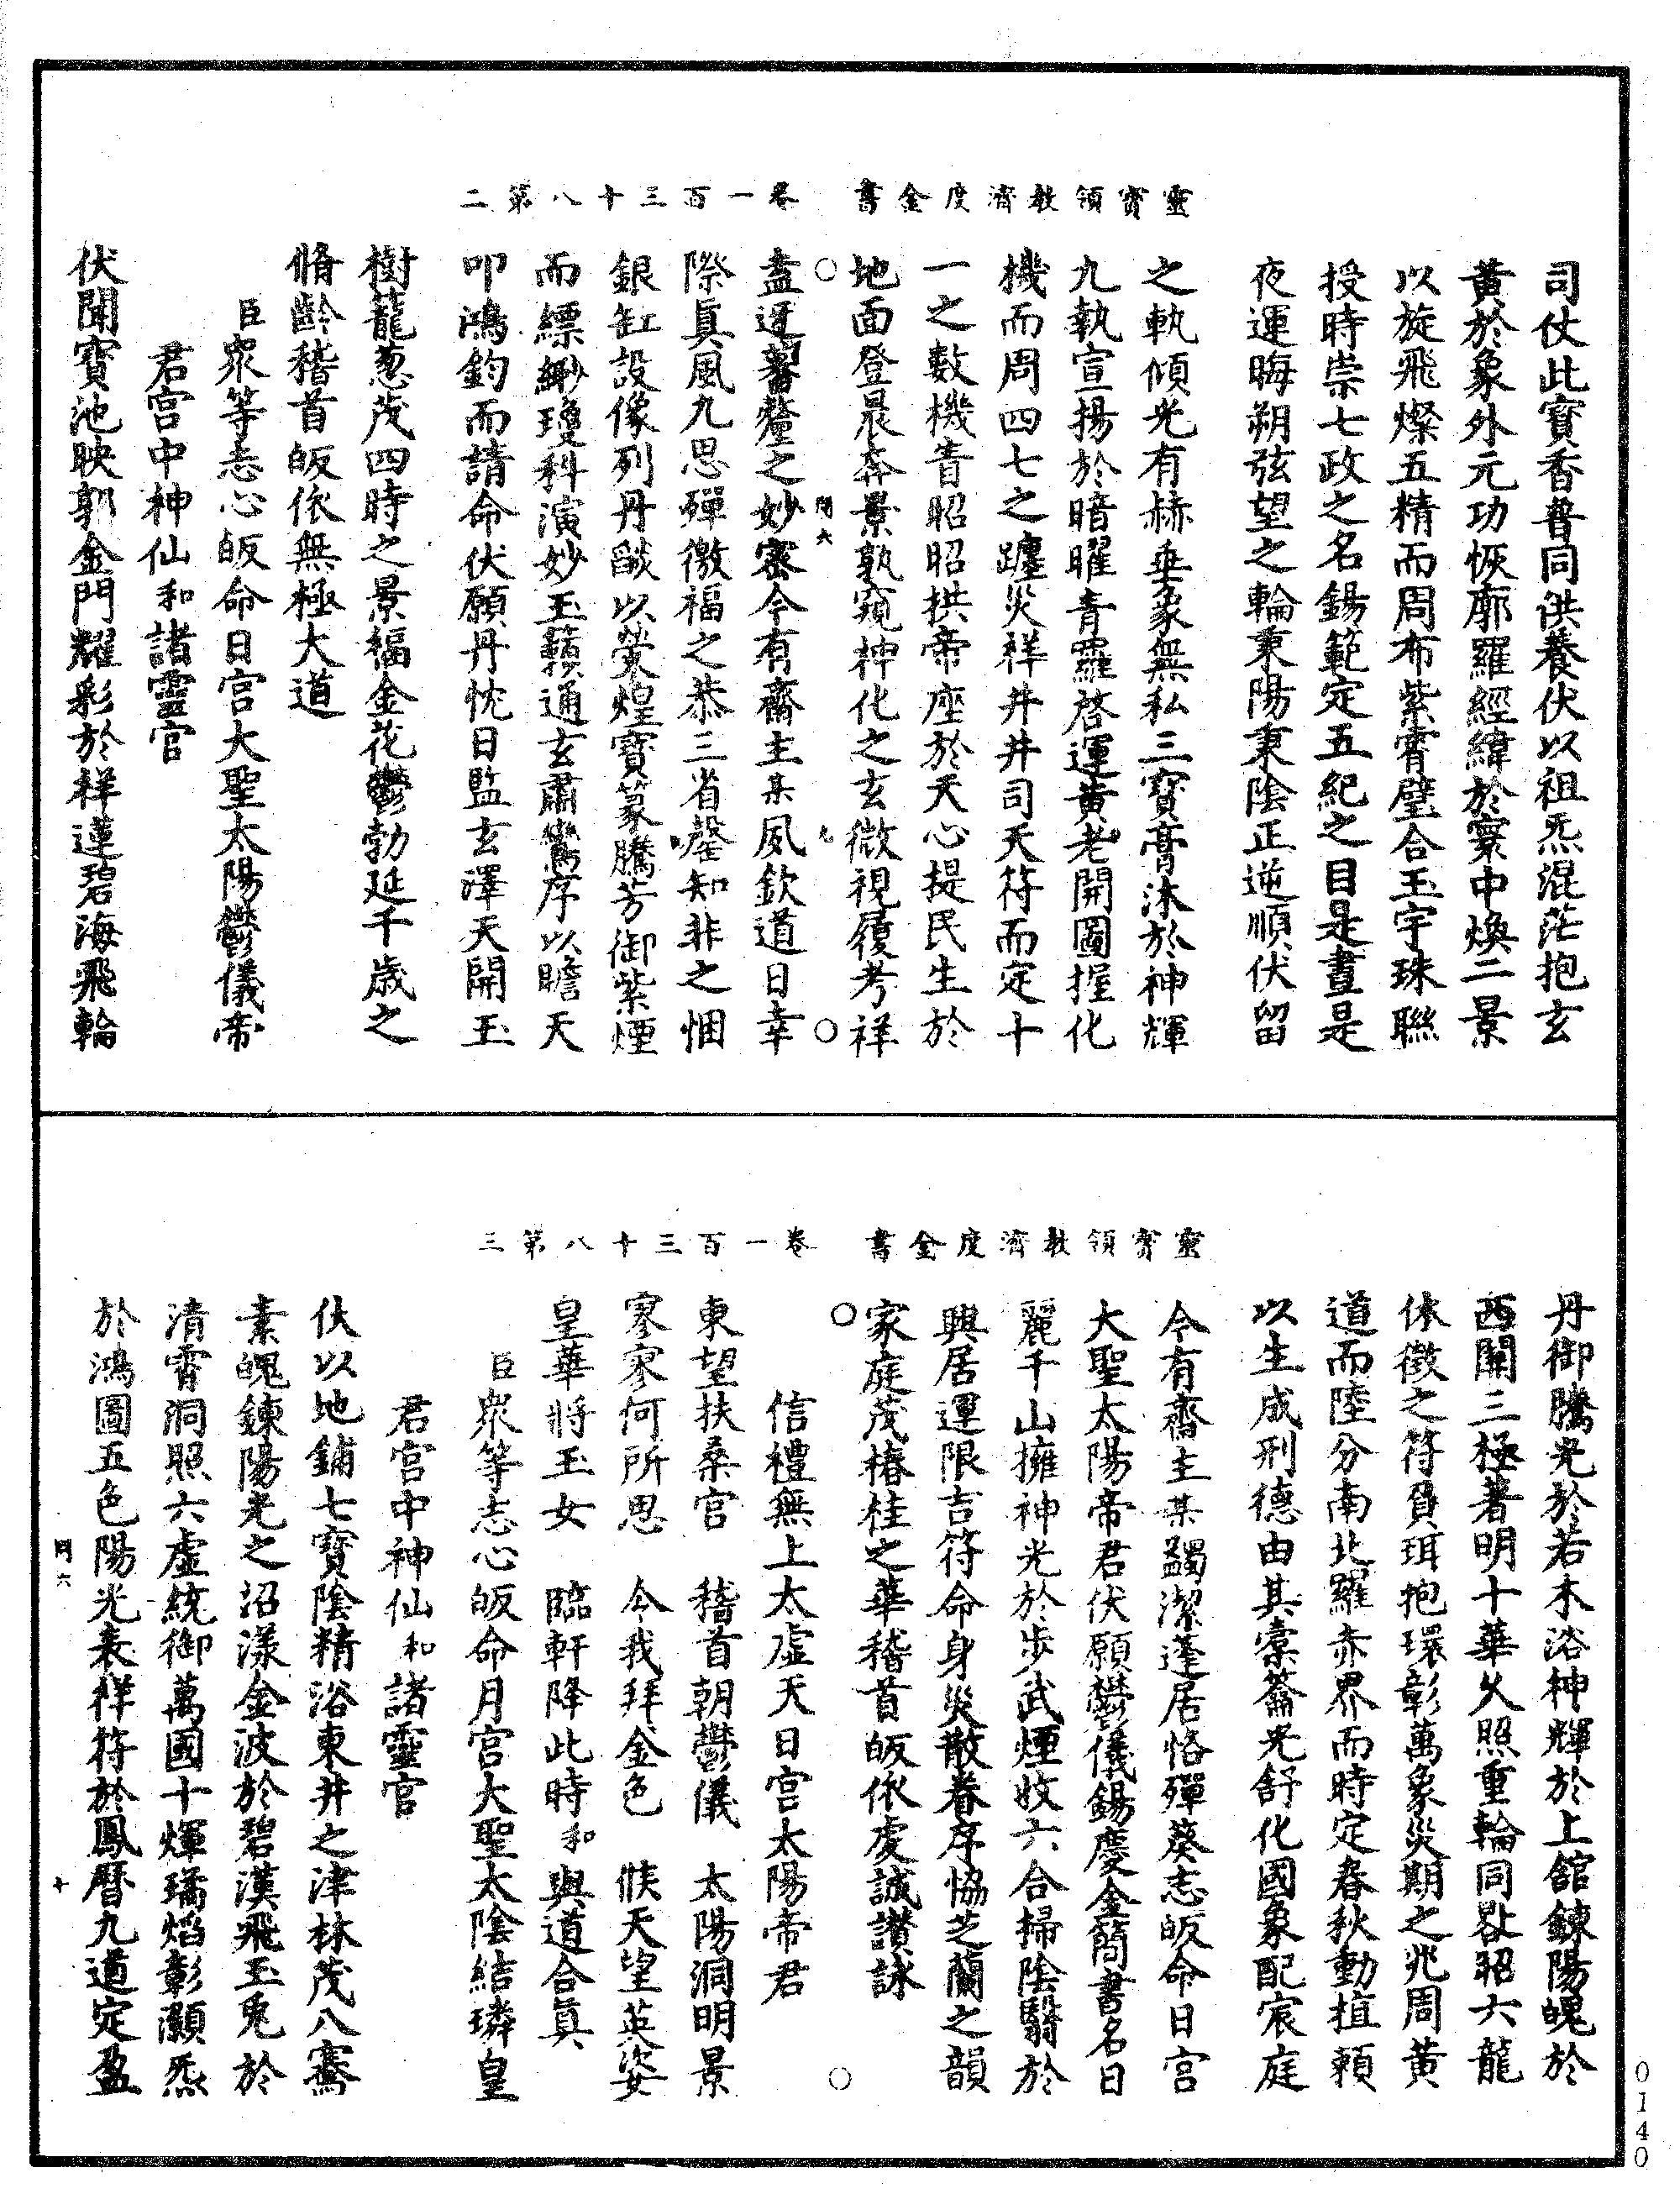 靈寶領教濟度金書 卷一百三十八第二
司仗此寶香普同供養伏以祖炁混茫抱玄
黃於象外元功恢廓羅經緯於寰中煥二景
以旋飛燦五精而周布紫霄璧合玉宇珠聯
授時崇七政之名錫範定五紀之目是晝是
夜運晦朔弦望之輪秉陽秉陰正逆順伏留
之軌傾光有赫垂象無私三寶膏沐於神輝
九執宣揚於暗曜青羅啓運黃老開圖握化
機而周四七之躔災祥井井司天符而定十
一之數機眚昭昭拱帝座於天心提民生於
地面登晨奔景孰窺神化之玄微視履考祥
○ 問六 九 ○
盍迓蕃釐之妙密今有齋主某夙欽道日幸
際真風九思殫徼福之恭三省罄知非之悃
銀缸設像列丹燄以熒煌寶篆騰芳御紫煙
而縹緲瓊科演妙玉籟通玄肅鴛序以瞻天
叩鴻鈞而請命伏願丹忱日監玄澤天開玉
樹蘢葱茂四時之景福金花鬱勃延千歲之
脩齡稽首皈依無極大道
臣眾等志心皈命日宮大聖太陽鬱儀帝
君宮中神仙和諸靈官
伏聞寶池映郭金門耀彩於祥蓮碧海飛輪
靈寶領教濟度金書 卷一百三十八第三
丹御騰光於若木浴神輝於上舘鍊陽魄於
西關三極著明十華久照重輪同晷昭六龍
休徵之符負珥抱環彰萬象災期之兆周黃
道而陸分南北羅赤界而時定春秋動植賴
以生成刑德由其橐籥光舒化國象配宸庭
今有齋主某蠲潔蓬居恪殫葵志皈命日宮
大聖太陽帝君伏願鬱儀錫慶金簡書名日
麗千山擁神光於步武煙妏六合掃陰翳於
興居運限吉符命身災散眷序恊芝蘭之韻
家庭茂椿桂之華稽首皈依虔誠讃詠
○ ○
信禮無上太虛天日宮太陽帝君
東望扶桑宮 稽首朝鬱儀 太陽洞明景
寥寥何所思 今我拜金色 倐天望英姿
皇華將玉女 臨軒降此時和 與道合真
臣眾等志心皈命月宮大聖太陰結璘皇
君宮中神仙和諸靈官
伏以地鋪七寶陰精浴東井之津林茂八騫
素魄鍊陽光之沼漾金波於碧漢飛玉兎於
清霄洞照六虛統御萬國十煇璚焰彰灝炁
於鴻圖五色陽光表祥符於鳳曆九道定盈
問六 十
0140